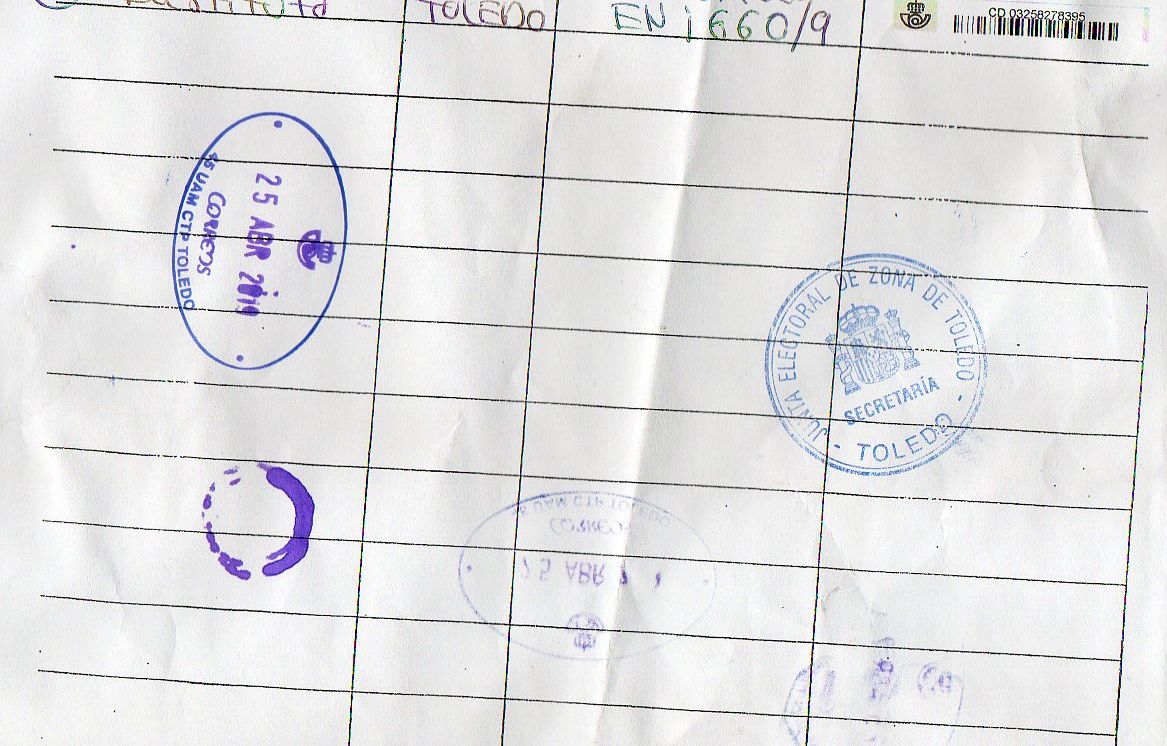 TOLEDO
EN 1660/9
CD 03258278395
25 ABR 2019
CORREOS
45 UAM CTP TOLEDO
JUNTA ELECTORAL DE ZONA DE TOLEDO
SECRETARÍA
- TOLEDO -
UAM CTP TOLEDO
CORREOS
25 ABR